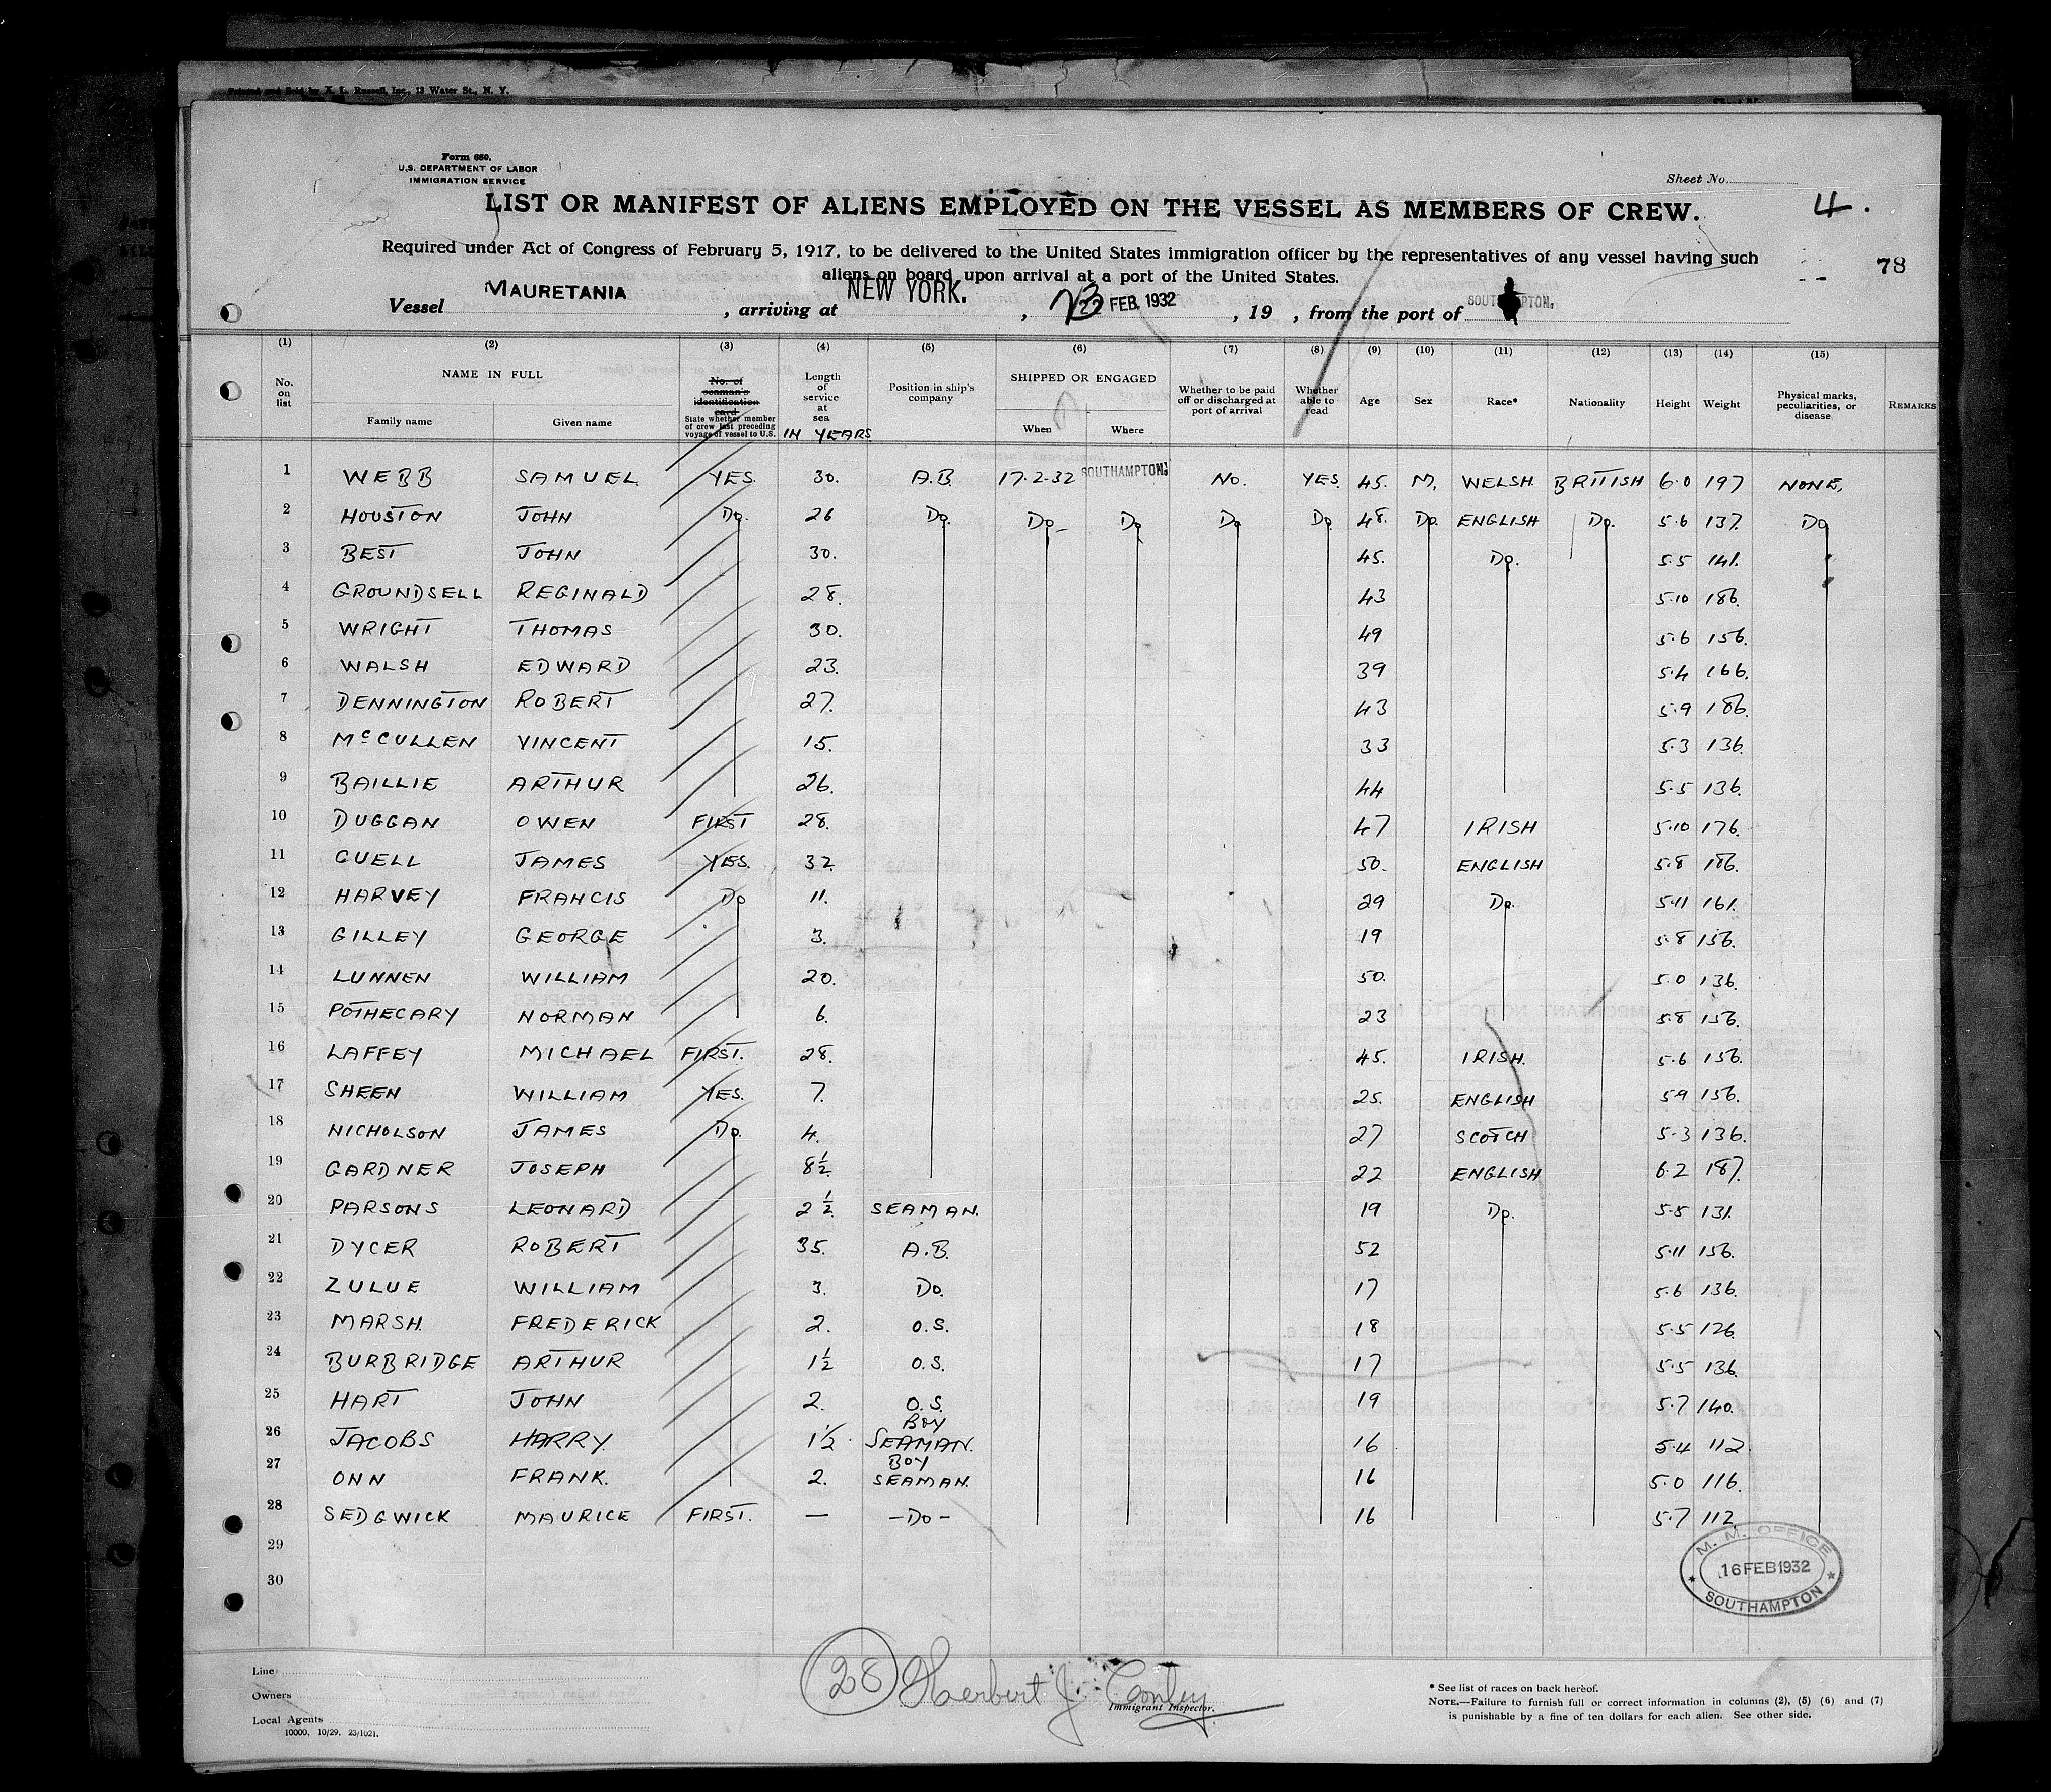 Printed and Sold by X. L. Russell, Inc., 13 Water St., N. Y.
Form 680.
U.S. DEPARTMENT OF LABOR
IMMIGRATION SERVICE
Sheet No.
LIST OR MANIFEST OF ALIENS EMPLOYED ON THE VESSEL AS MEMBERS OF CREW.
4.
Required under Act of Congress of February 5, 1917, to be delivered to the United States immigration officer by the representatives of any vessel having such
aliens on board upon arrival at a port of the United States.
78
Vessel MAURETANIA, arriving at NEW YORK., 23 22 FEB. 1932, 19 , from the port of SOUTHAMPTON.
(1) (2) (3) (4) (5) (6) (7) (8) (9) (10) (11) (12) (13) (14) (15)
No. on list
NAME IN FULL
Family name Given name
No. of seaman's identification card
State whether member of crew last preceding voyage of vessel to U.S.
Length of service at sea IN YEARS
Position in ship's company
SHIPPED OR ENGAGED
When Where
Whether to be paid off or discharged at port of arrival
Whether able to read
Age Sex Race* Nationality Height Weight
Physical marks, peculiarities, or disease.
REMARKS
1 WEBB SAMUEL. YES. 30. A.B. 17.2.32 SOUTHAMPTON. No. YES. 45. M. WELSH. BRITISH 6.0 197 NONE,
2 HOUSTON JOHN Do. 26 Do. Do- Do Do Do 48. Do. ENGLISH Do. 5.6 137. Do
3 BEST JOHN 30. 45. Do. 5.5 141.
4 GROUNDSELL REGINALD 28. 43 5.10 186.
5 WRIGHT THOMAS 30. 49 5.6 156.
6 WALSH EDWARD 23. 39 5.4 166.
7 DENNINGTON ROBERT 27. 43 5.9 186.
8 McCULLEN VINCENT 15. 33 5.3 136.
9 BAILLIE ARTHUR 26. 44 5.5 136.
10 DUGGAN OWEN FIRST 28. 47 IRISH 5.10 176.
11 CUELL JAMES YES. 32. 50. ENGLISH 5.8 186.
12 HARVEY FRANCIS Do 11. 29 Do. 5.11 161.
13 GILLEY GEORGE 3. 19 5.8 156.
14 LUNNEN WILLIAM 20. 50. 5.0 136.
15 POTHECARY NORMAN 6. 23 5.8 156.
16 LAFFEY MICHAEL FIRST. 28. 45. IRISH. 5.6 156.
17 SHEEN WILLIAM YES. 7. 25. ENGLISH 5.9 156.
18 NICHOLSON JAMES Do. 4. 27 SCOTCH 5.3 136.
19 GARDNER JOSEPH 8½. 22 ENGLISH 6.2 187.
20 PARSONS LEONARD 2½. SEAMAN. 19 Do. 5.8 131.
21 DYCER ROBERT 35. A.B. 52 5.11 156.
22 ZULUE WILLIAM 3. Do. 17 5.6 136.
23 MARSH. FREDERICK 2. O.S. 18 5.5 126.
24 BURBRIDGE ARTHUR 1½ O.S. 17 5.5 136.
25 HART JOHN 2. O.S. 19 5.7 140.
26 JACOBS HARRY. 1½ BOY SEAMAN. 16 5.4 112.
27 ONN FRANK. 2. BOY SEAMAN. 16 5.0 116.
28 SEDGWICK MAURICE FIRST. — -Do- 16 5.7 112
29
30
M. M. OFFICE
16 FEB 1932
SOUTHAMPTON
Line
Owners
Local Agents
10000, 10/29. 23/1021.
28 Herbert J. Conley
Immigrant Inspector.
* See list of races on back hereof.
NOTE.—Failure to furnish full or correct information in columns (2), (5) (6) and (7)
is punishable by a fine of ten dollars for each alien. See other side.